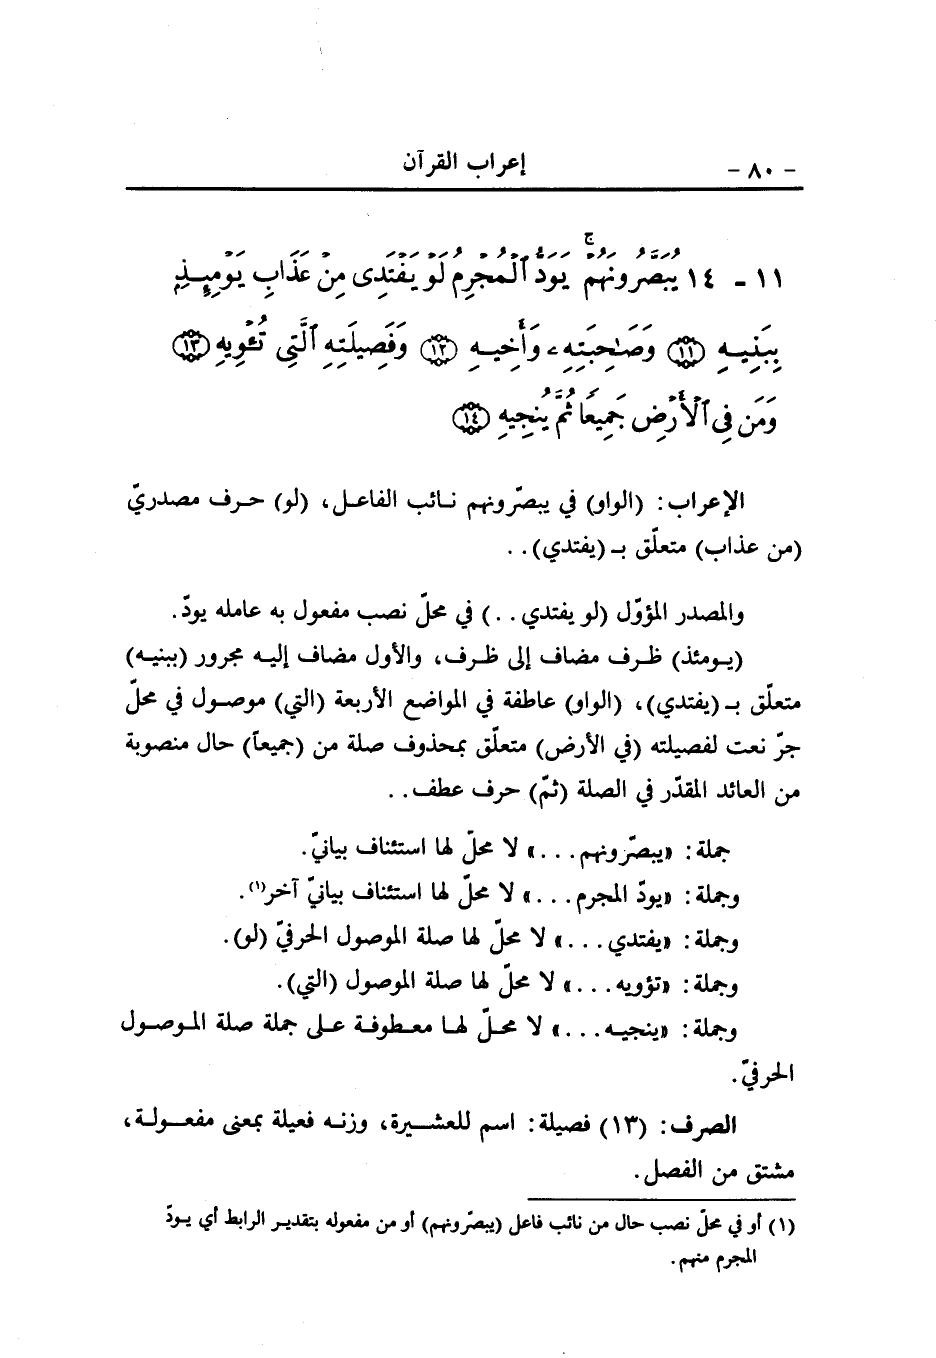 - ٨٠ -
إعراب القرآن
١١ - ١٤ يُبَصَّرُونَهُمْ ۚ يَوَدُّ ٱلْمُجْرِمُ لَوْ يَفْتَدِى مِنْ عَذَابِ يَوْمِئِذٍۭ
بِبَنِيهِ ⟨١١⟩ وَصَـٰحِبَتِهِۦ وَأَخِيهِ ⟨١٢⟩ وَفَصِيلَتِهِ ٱلَّتِى تُـْٔوِيهِ ⟨١٣⟩
وَمَن فِى ٱلْأَرْضِ جَمِيعًا ثُمَّ يُنجِيهِ ⟨١٤⟩
الإعراب: (الواو) في يبصّرونهم نائب الفاعل، (لو) حرف مصدريّ
(من عذاب) متعلّق بـ (يفتدي)..
والمصدر المؤوّل (لو يفتدي..) في محلّ نصب مفعول به عامله يودّ.
(يومئذ) ظرف مضاف إلى ظرف، والأول مضاف إليه مجرور (ببنيه)
متعلّق بـ (يفتدي)، (الواو) عاطفة في المواضع الأربعة (التي) موصول في محلّ
جرّ نعت لفصيلته (في الأرض) متعلّق بمحذوف صلة من (جميعاً) حال منصوبة
من العائد المقدّر في الصلة (ثمّ) حرف عطف..
جملة: «يبصّرونهم...» لا محلّ لها استئناف بيانيّ.
وجملة: «يودّ المجرم...» لا محلّ لها استئناف بيانيّ آخر(١).
وجملة: «يفتدي...» لا محلّ لها صلة الموصول الحرفيّ (لو).
وجملة: «تؤويه...» لا محلّ لها صلة الموصول (التي).
وجملة: «ينجيه...» لا محلّ لها معطوفة على جملة صلة الموصول
الحرفيّ.
الصرف: (١٣) فصيلة: اسم للعشيرة، وزنه فعيلة بمعنى مفعولة،
مشتق من الفصل.
(١) أو في محلّ نصب حال من نائب فاعل (يبصّرونهم) أو من مفعوله بتقدير الرابط أي يودّ
المجرم منهم.